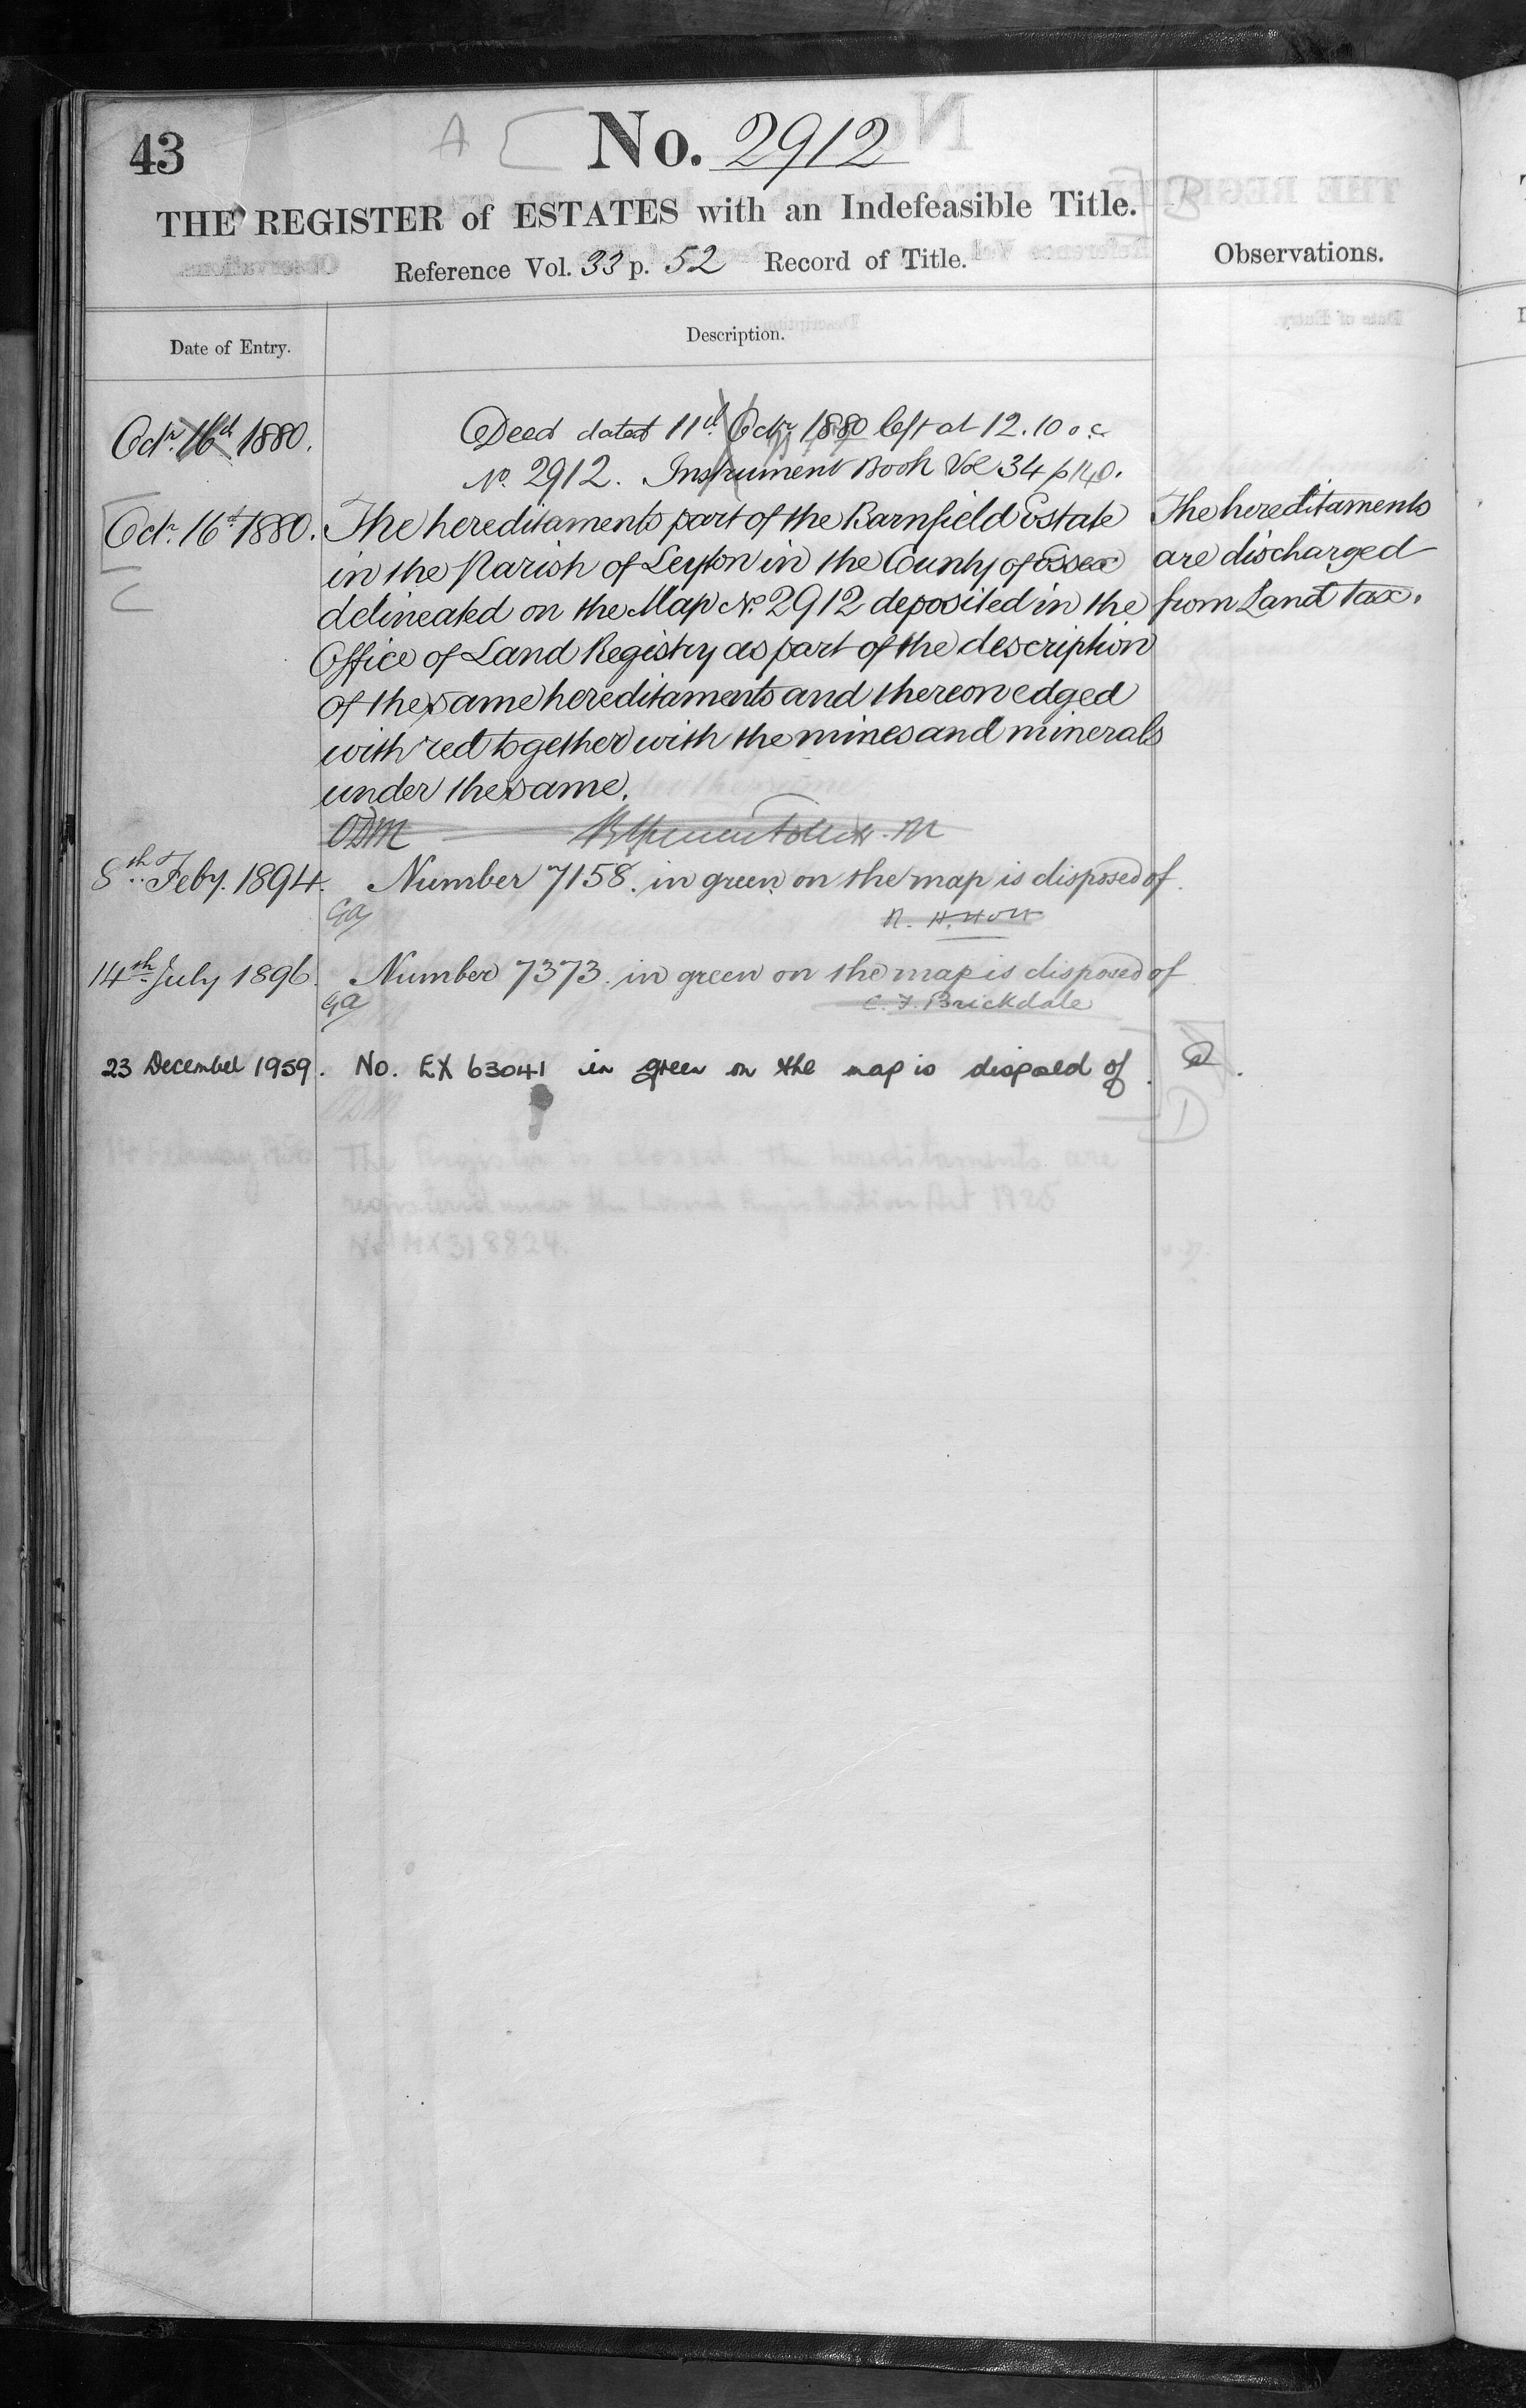 43
A
No. 2912
THE REGISTER of ESTATES with an Indefeasible Title.
Reference Vol. 33 p. 52 Record of Title.
Observations.
Date of Entry.
Description.
Octr. 16th 1880.
Deed dated 11th Octr. 1880 left at 12.10 o.c.
No. 2912. Instrument Book Vol 34 p 140.
Octr. 16th 1880.
The hereditaments part of the Barnfield Estate
in the Parish of Leyton in the County of Essex
delineated on the Map No. 2912 deposited in the
Office of Land Registry as part of the description
of the same hereditaments and thereon edged
with red together with the mines and minerals
under the same.
The hereditaments
are discharged
from Land tax.
C
ODM
8th Feby. 1894. Number 7158. in green on the map is disposed of.
GA R. H. Holt
14th July 1896. Number 7373. in green on the map is disposed of
GA C. F. Brickdale
23 December 1959. No. EX 63041 in green on the map is disposed of.
D
The Register is closed. The hereditaments are
registered under the Land Registration Act 1925